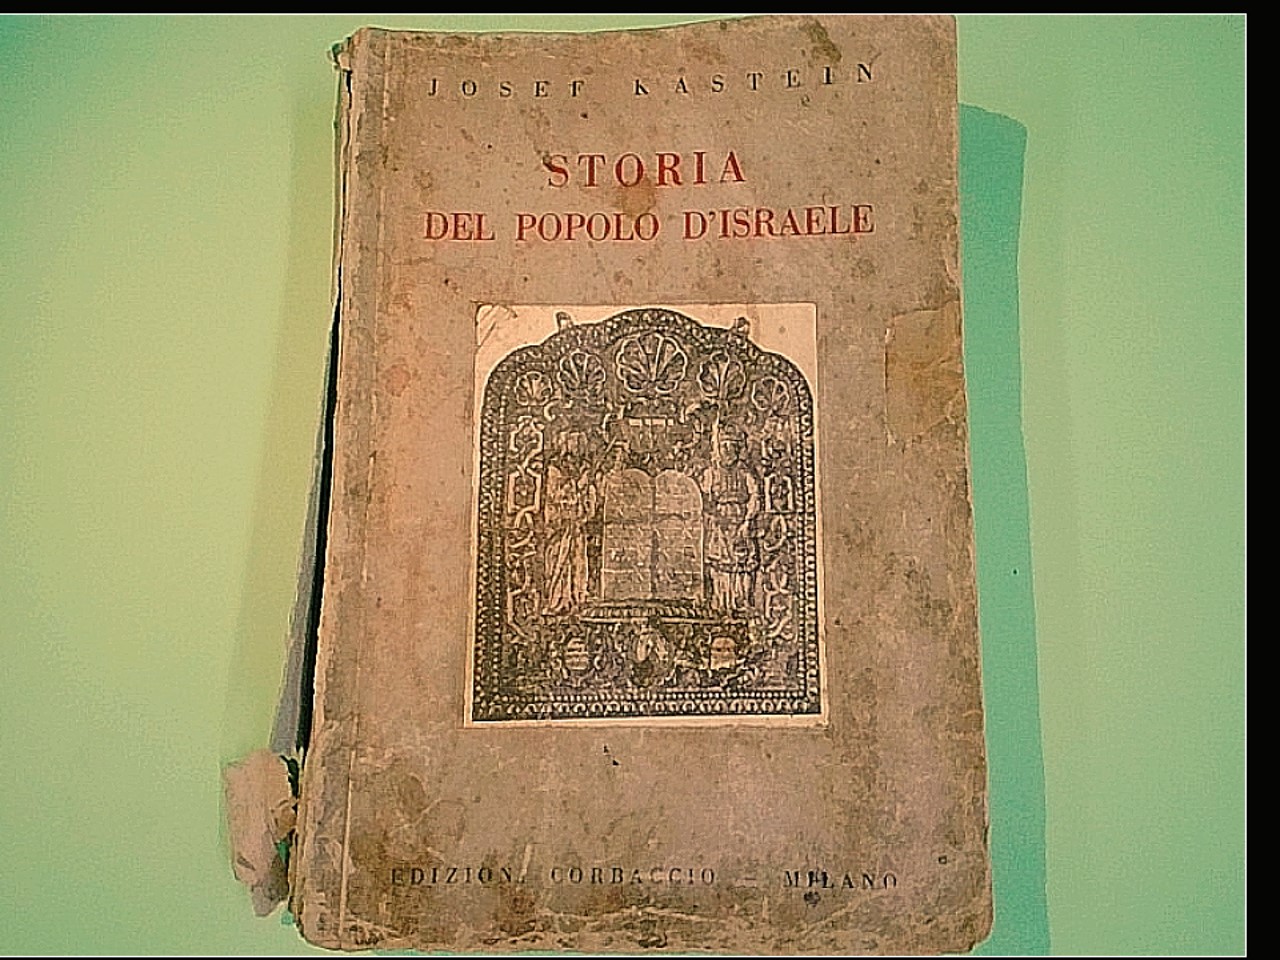 JOSEF KASTEIN
STORIA
DEL POPOLO D'ISRAELE
EDIZIONI CORBACCIO - MILANO